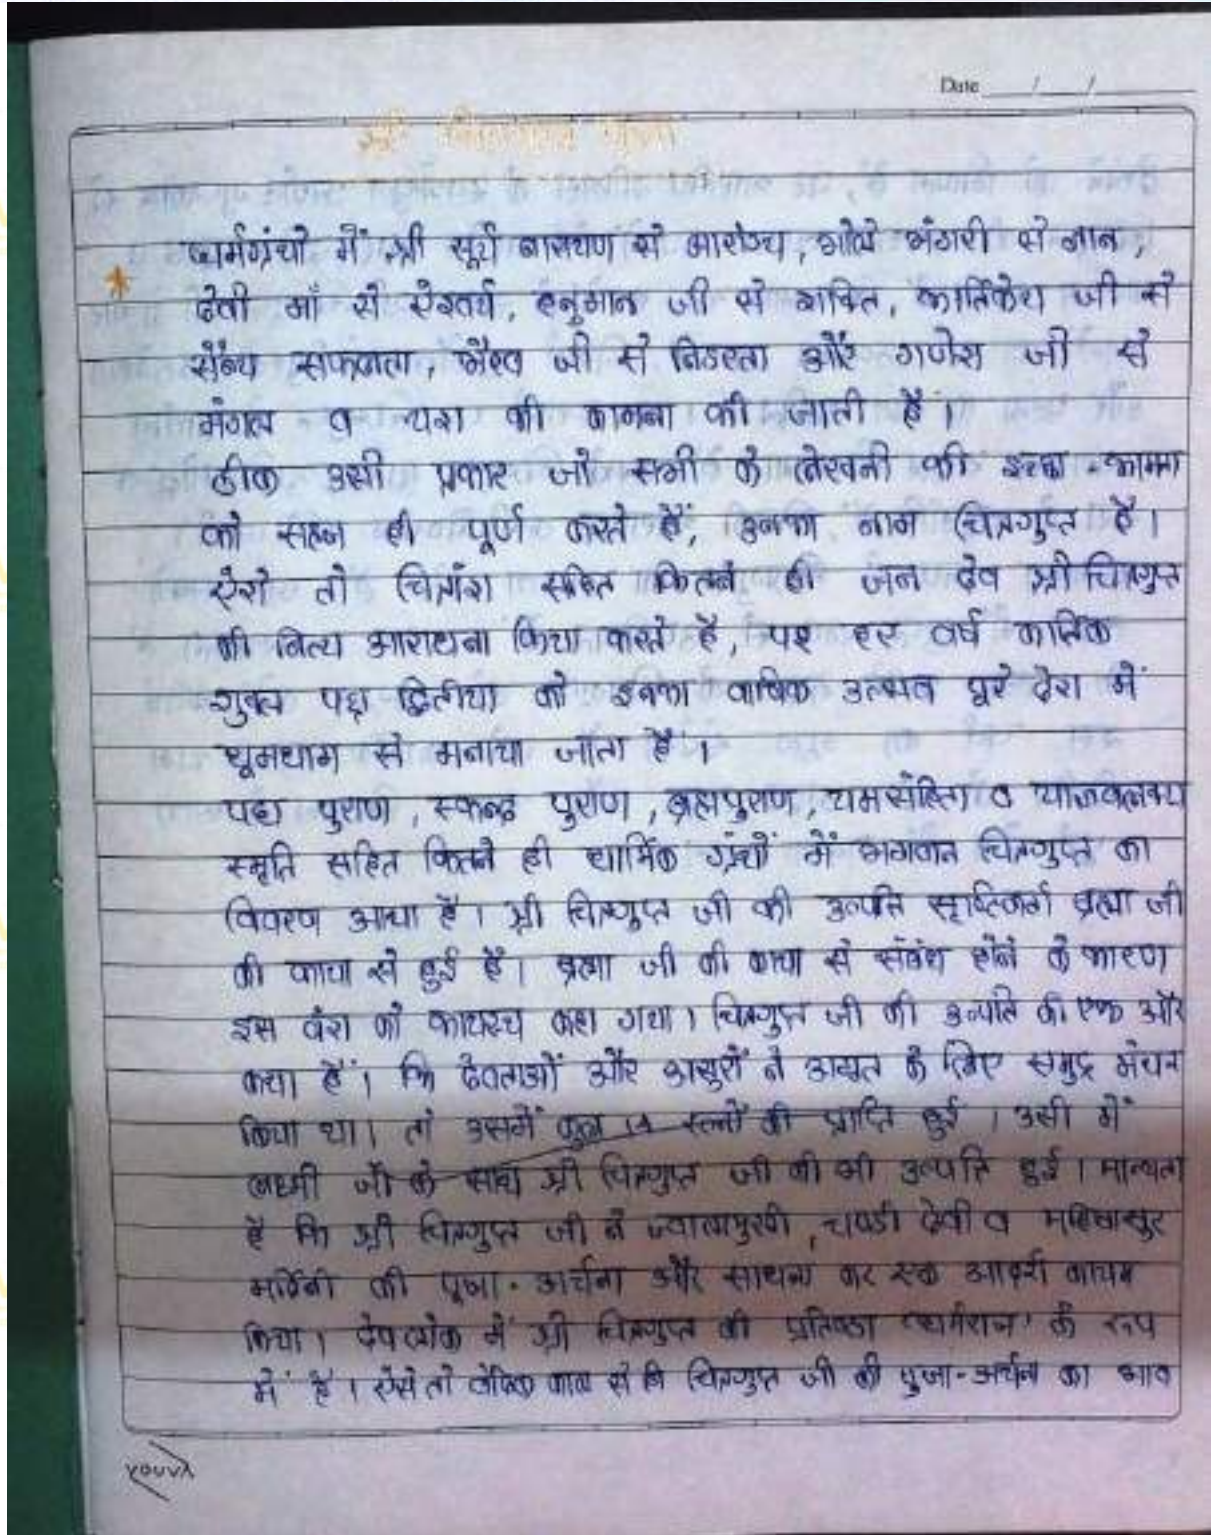 Date
श्री चित्रगुप्त पूजा
धर्मग्रंथो में श्री सूर्य नारायण से आरोग्य, भोले भंडारी से ज्ञान,
देवी माँ से ऐश्वर्य, हनुमान जी से शक्ति, कार्तिकेय जी से
सैन्य सफलता, भैरव जी से निडरता और गणेश जी से
मंगल व यश की कामना की जाती है ।
ठीक उसी प्रकार जो सभी के लेखनी की इच्छा - कामना
को सहज ही पूर्ण करते हैं, उनका नाम चित्रगुप्त है ।
ऐसे तो चित्रांश सहित कितने ही जन देव श्री चित्रगुप्त
की नित्य आराधना किया करते है, पर हर वर्ष कार्तिक
शुक्ल पक्ष द्वितीया को इनका वार्षिक उत्सव पूरे देश में
धूमधाम से मनाया जाता है ।
पद्म पुराण, स्कन्द पुराण, ब्रह्मपुराण, यमसंहिता व याज्ञवल्क्य
स्मृति सहित कितने ही धार्मिक ग्रंथों में भगवान चित्रगुप्त का
विवरण आया है । श्री चित्रगुप्त जी की उत्पत्ति सृष्टिकर्ता ब्रह्मा जी
की काया से हुई है । ब्रह्मा जी की काया से संबंध होने के कारण
इस वंश को कायस्थ कहा गया । चित्रगुप्त जी की उत्पत्ति की एक और
कथा है । कि देवताओं और असुरों ने अमृत के लिए समुद्र मंथन
किया था । तो उसमें कुल 14 रत्नों की प्राप्ति हुई । उसी में
लक्ष्मी जी के साथ श्री चित्रगुप्त जी की भी उत्पत्ति हुई । मान्यता
है कि श्री चित्रगुप्त जी ने ज्वालामुखी, चण्डी देवी व महिषासुर
मर्दिनी की पूजा - अर्चना और साधना कर एक आदर्श कायम
किया । देवलोक में श्री चित्रगुप्त की प्रतिष्ठा 'धर्मराज' के रूप
में है । ऐसे तो वैदिक काल से ही चित्रगुप्त जी की पूजा-अर्चना का भाव
YOUVA